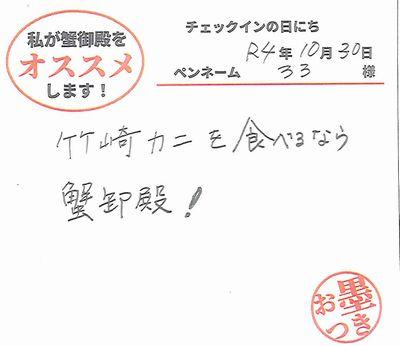 私が蟹御殿を
オススメ
します！
チェックインの日にち
R4年10月30日
ペンネーム 33 様
竹崎カニを食べるなら
蟹御殿！
お墨つき